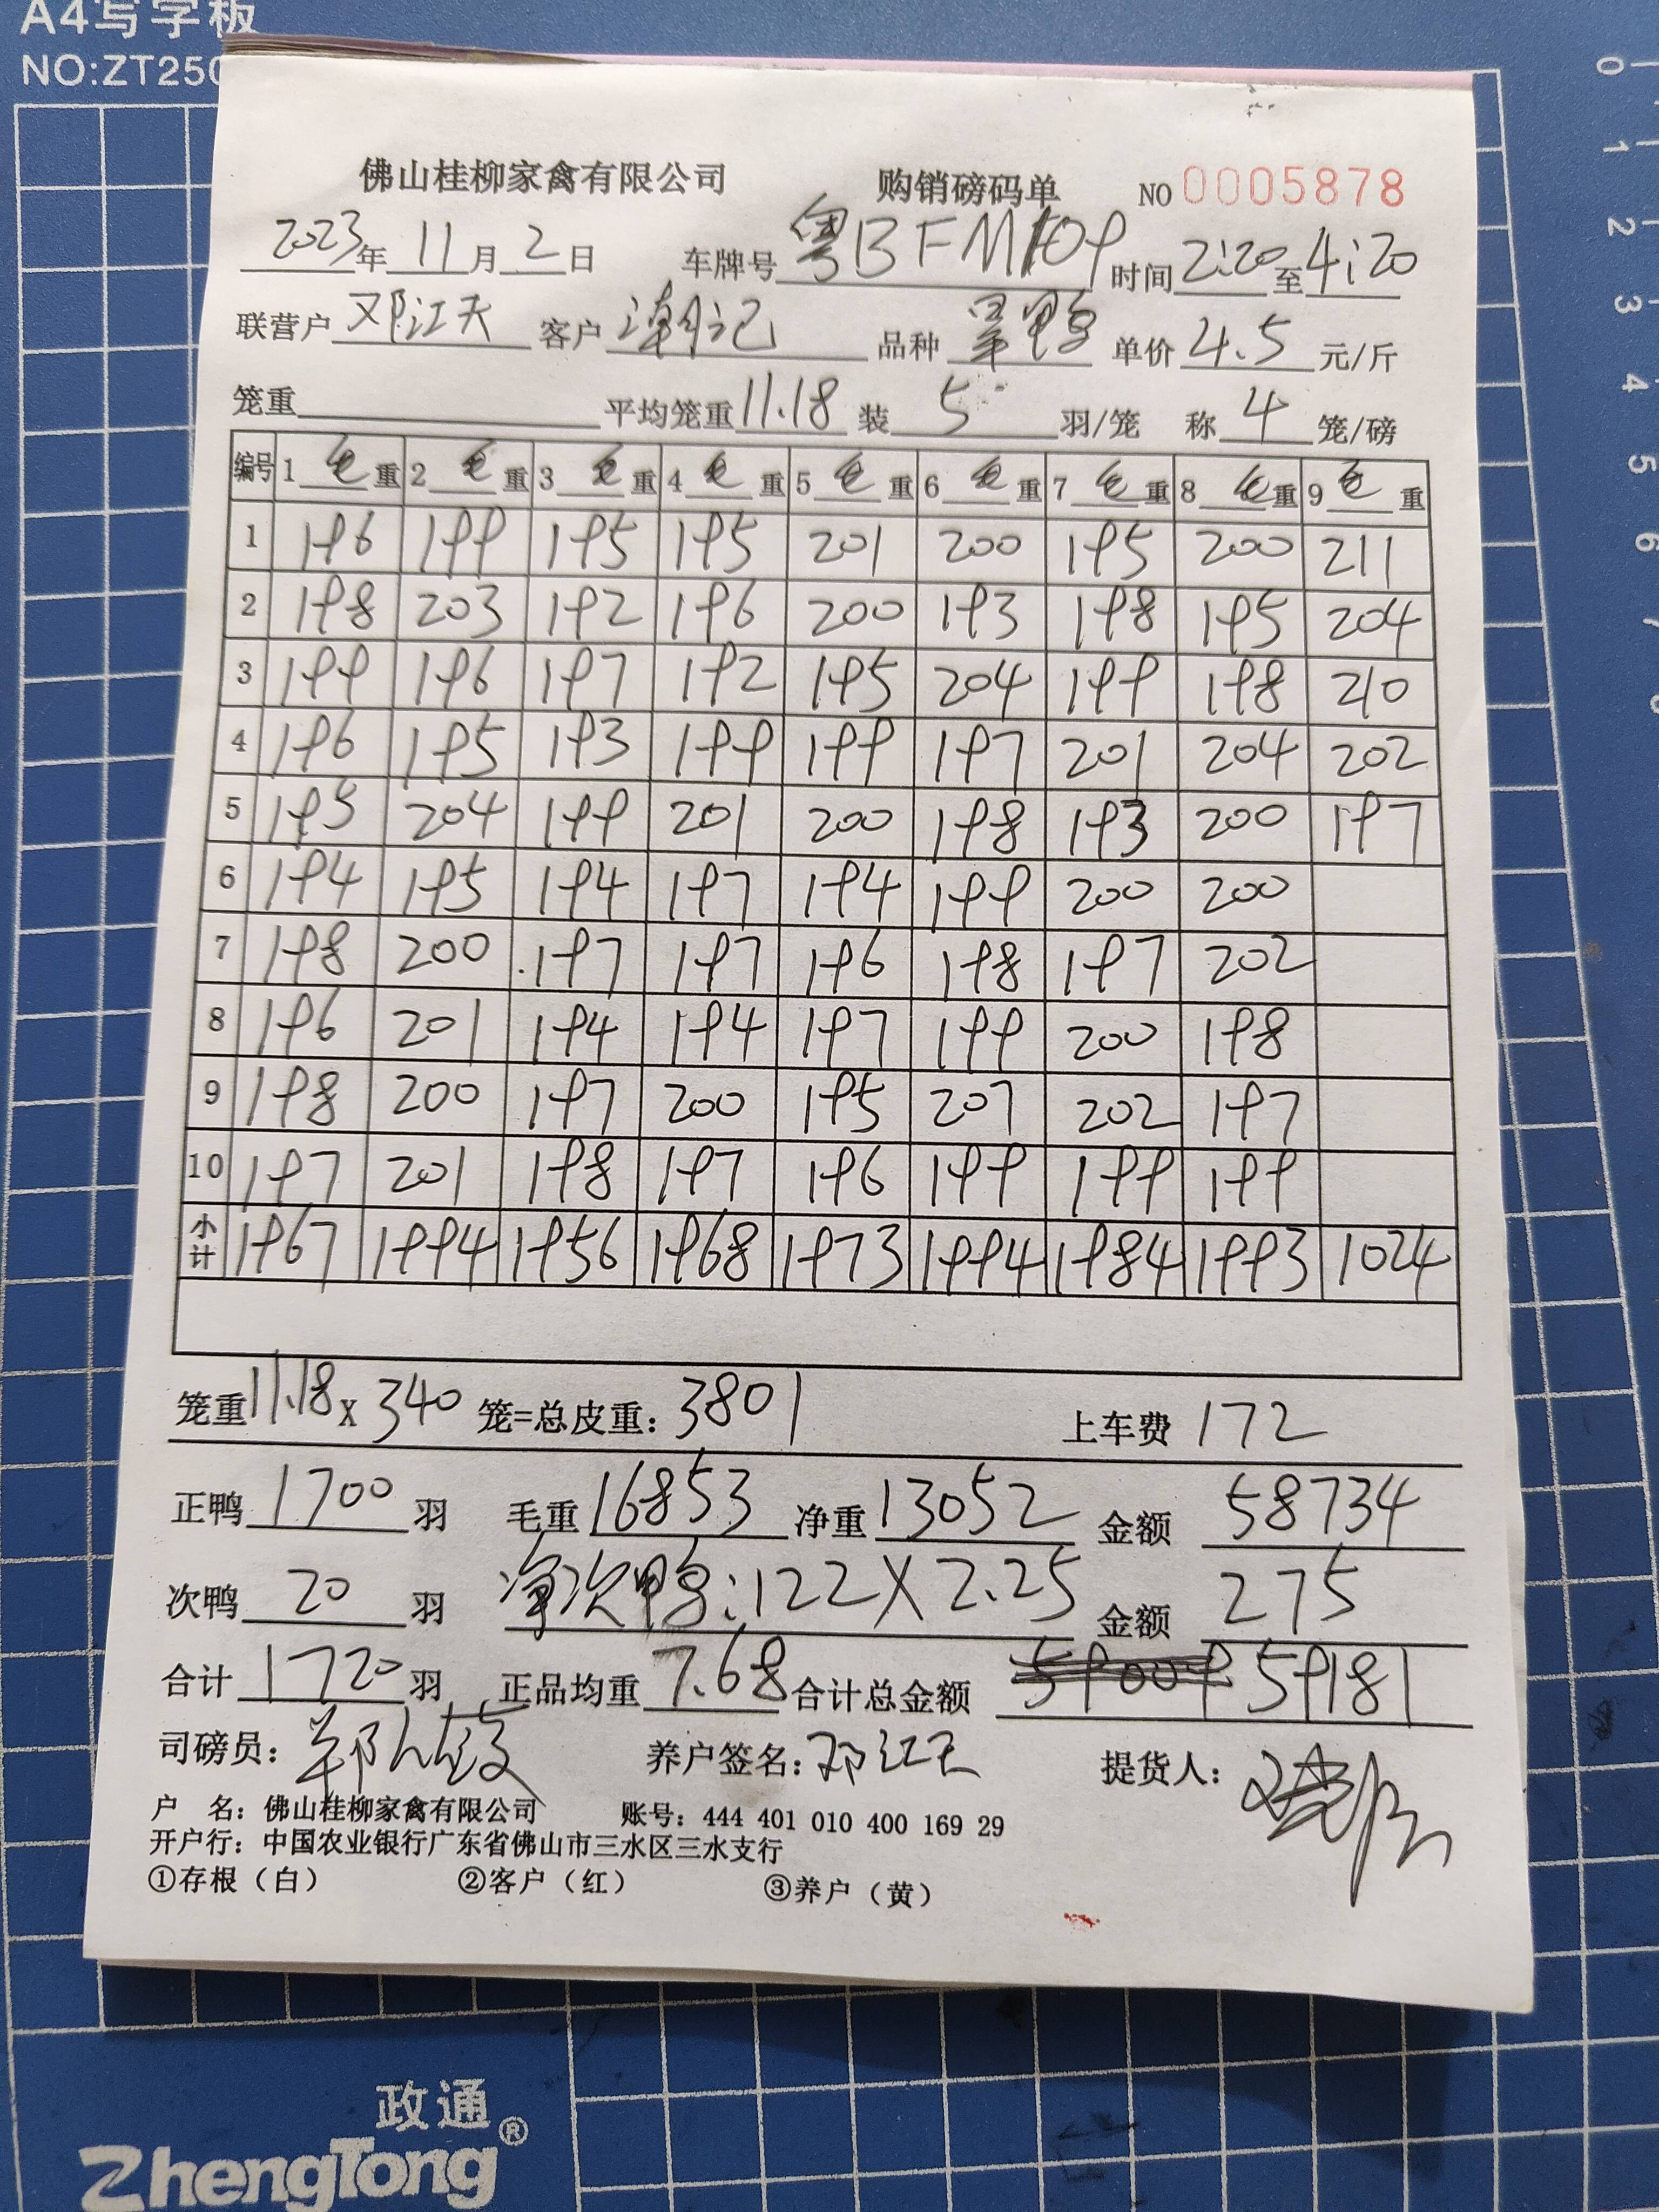 A4写字板
NO:ZT250
佛山桂柳家禽有限公司 购销磅码单 NO 0005878
2023年 11月 2日 车牌号 粤BFM109 时间 2:20 至 4:20
联营户 邓江天 客户 潮记 品种 单价 4.5 元/斤
笼重 平均笼重 11.18 装 5 羽/笼 称 4 笼/磅
编号 1 毛重 2 毛重 3 毛重 4 毛重 5 毛重 6 毛重 7 毛重 8 毛重 9 毛重
1 196 199 195 195 201 200 195 200 211
2 198 203 192 196 200 193 198 195 204
3 199 196 197 192 195 204 199 198 210
4 196 195 193 199 199 197 201 204 202
5 195 204 199 201 200 198 193 200 197
6 194 195 194 197 194 199 200 200
7 198 200 197 197 196 198 197 202
8 196 201 194 194 197 199 200 198
9 198 200 197 200 195 207 202 197
10 197 201 198 197 196 199 199 199
小计 1967 1994 1956 1968 1973 1994 1984 1993 1024
笼重 11.18 X 340 笼=总皮重: 3801 上车费 172
正鸭 1700 羽 毛重 16853 净重 13052 金额 58734
次鸭 20 羽 净次鸭:122X2.25 金额 275
合计 1720 羽 正品均重 7.68 合计总金额 59009 59181
司磅员: 养户签名: 邓江天 提货人:
户 名: 佛山桂柳家禽有限公司 账号: 444 401 010 400 169 29
开户行: 中国农业银行广东省佛山市三水区三水支行
①存根（白） ②客户（红） ③养户（黄）
0
1
2
3
4
5
6
7
政通®
ZhengTong